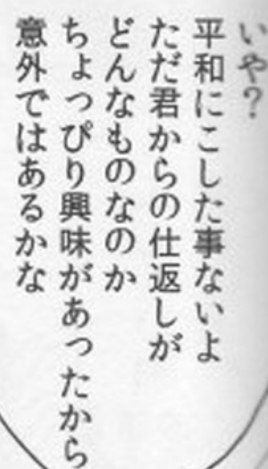 いや？
平和にこした事ないよ
ただ君からの仕返しが
どんなものなのか
ちょっぴり興味があったから
意外ではあるかな